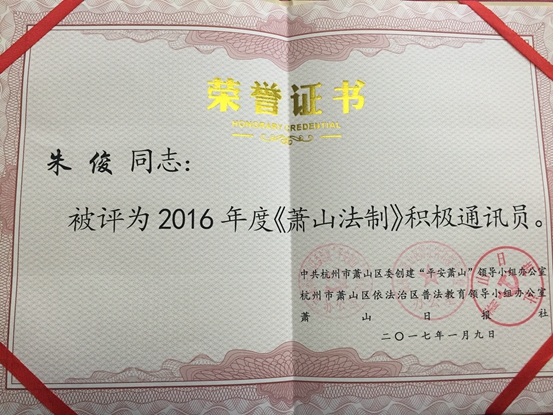 荣誉证书
HONORARY CREDENTIAL
朱 俊 同志：
被评为2016年度《萧山法制》积极通讯员。
中共杭州市萧山区委创建“平安萧山”领导小组办公室
杭州市萧山区依法治区普法教育领导小组办公室
萧山日报社
二〇一七年一月九日